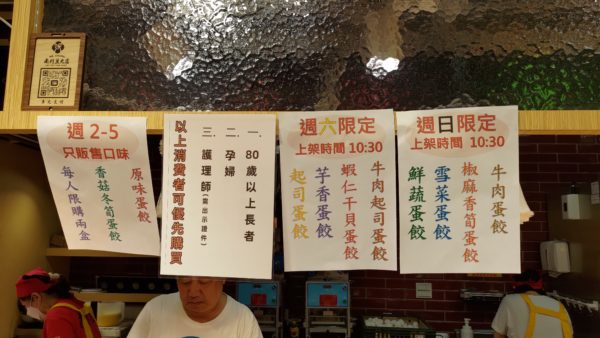 週 2-5
只販售口味
原味蛋餃
香菇冬筍蛋餃
每人限購兩盒
一. 80歲以上長者
二. 孕婦
三. 護理師(需出示證件)
以上消費者可優先購買
週六限定
上架時間 10:30
牛肉起司蛋餃
蝦仁干貝蛋餃
芋香蛋餃
起司蛋餃
週日限定
上架時間 10:30
牛肉蛋餃
椒麻香筍蛋餃
雪菜蛋餃
鮮蔬蛋餃